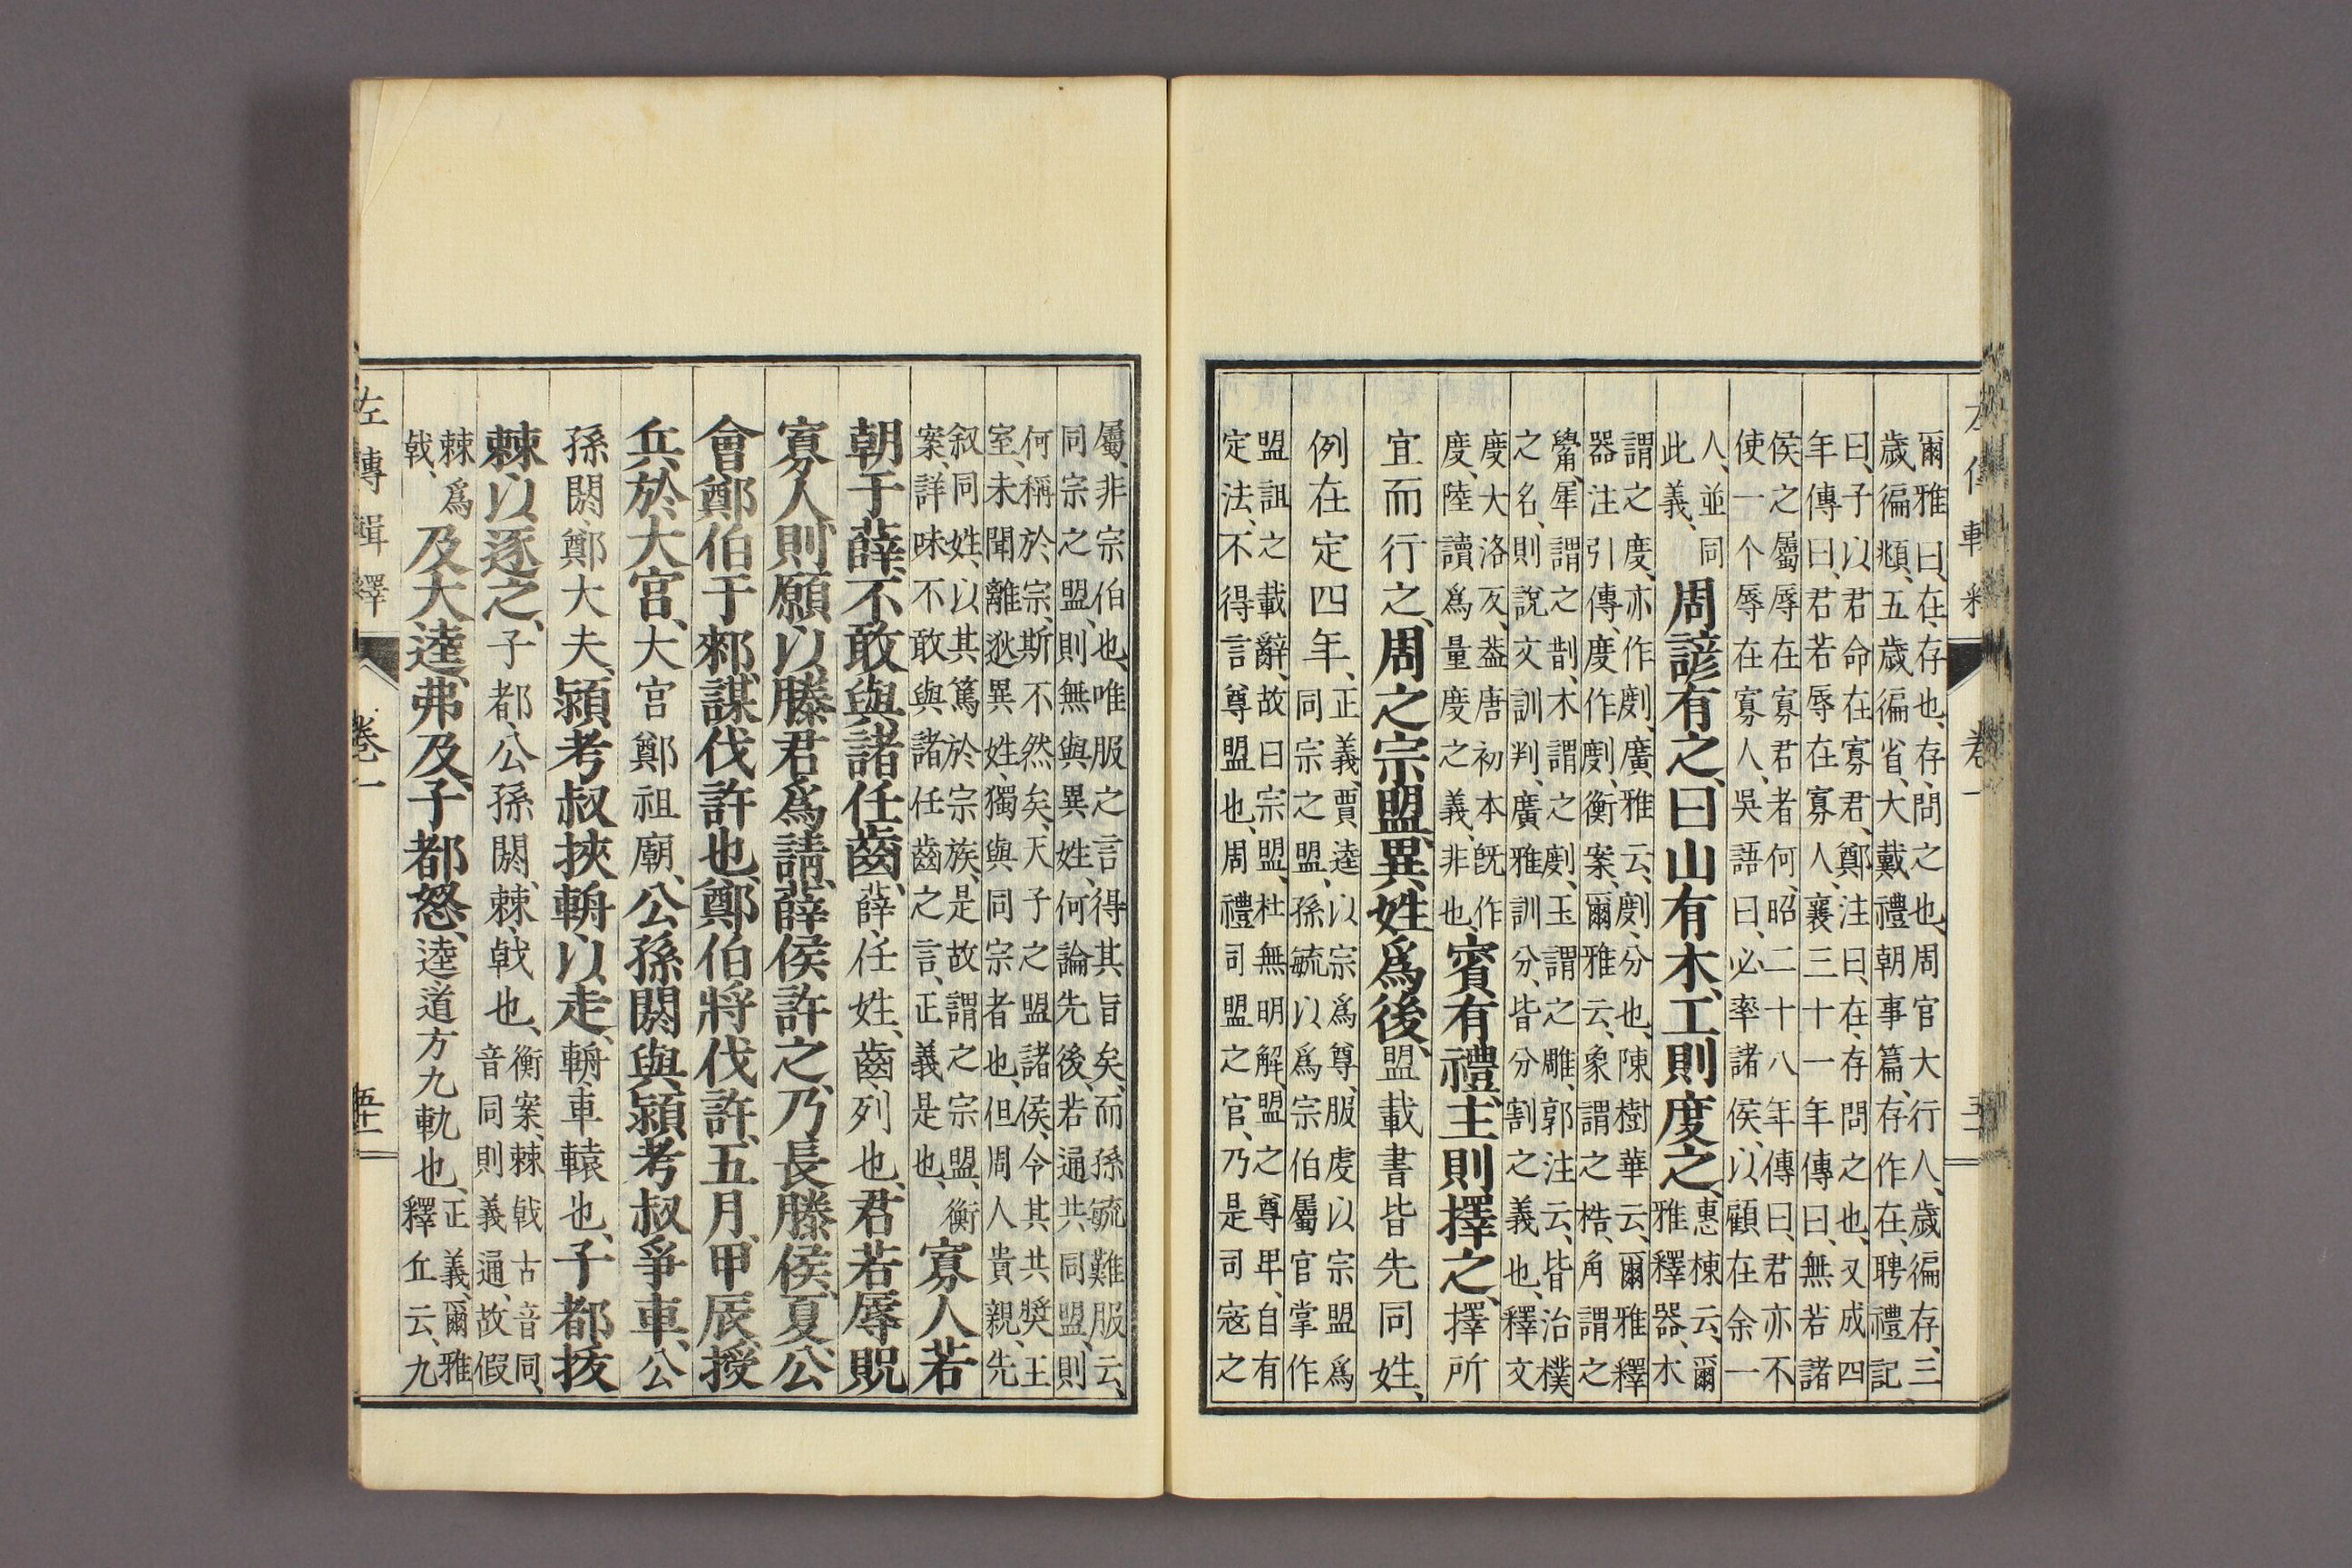 爾雅曰、在、存也、存、問之也、周官大行人、歲徧存、三
歲徧頫、五歲徧省、大戴禮朝事篇、存作在、聘禮記
曰、子以君命在寡君、鄭注曰、在、存問之也、又成四
年傳曰、君若辱在寡人、襄三十一年傳曰、無若諸
侯之屬辱在寡君者何、昭二十八年傳曰、君亦不
使一个辱在寡人、吳語曰、必率諸侯、以顧在余一
人、並同
此義、
周諺有之、曰山有木、工則度之、
惠棟云、爾
雅釋器、木
謂之度、亦作剫、廣雅云、剫、分也、陳樹華云、爾雅釋
器注引傳、度作剫、衡案、爾雅云、象謂之梏、角謂之
觷、犀謂之剒、木謂之剫、玉謂之雕、郭注云、皆治樸
之名、則說文訓判、廣雅訓分、皆分割之義也、釋文
度、大洛反、葢唐初本既作
度、陸讀爲量度之義、非也、
賓有禮、主則擇之、擇所
宜而行之、周之宗盟、異姓爲後、盟載書皆先同姓、
例在定四年、
正義、賈逵以宗爲尊、服虔以宗盟爲
同宗之盟、孫毓以爲宗伯屬官掌作
盟詛之載辭、故曰宗盟、杜無明解、盟之尊卑、自有
定法、不得言尊盟也、周禮司盟之官、乃是司寇之
左傳輯釋 卷一
屬、非宗伯也、唯服之言得其旨矣、而孫毓難服云、
同宗之盟、則無與異姓、何論先後、若通共同盟、則
何稱於宗、斯不然矣、天子之盟諸侯、令其共奬王
室、未聞離逖異姓、獨與同宗者也、但周人貴親、先
叙同姓、以其篤於宗族、是故謂之宗盟、衡
案、詳味不敢與諸任齒之言、正義是也、
寡人若
朝于薛、不敢與諸任齒、薛、任姓、齒、列也、君若辱貺
寡人、則願以滕君爲請、薛侯許之、乃長滕侯、夏、公
會鄭伯于郲、謀伐許也、鄭伯將伐許、五月、甲辰、授
兵於大宮、大宮鄭祖廟、公孫閼與潁考叔爭車、公
孫閼、鄭大夫、潁考叔挾輈以走、輈、車轅也、子都拔
棘以逐之、子都、公孫閼、棘、戟也、
衡案、棘戟古音同、
音同則義通、故假
棘爲
戟、
及大逵、弗及、子都怒、逵、道方九軌也、
正義、爾雅
釋丘云、九
左傳輯釋 卷一 五十二